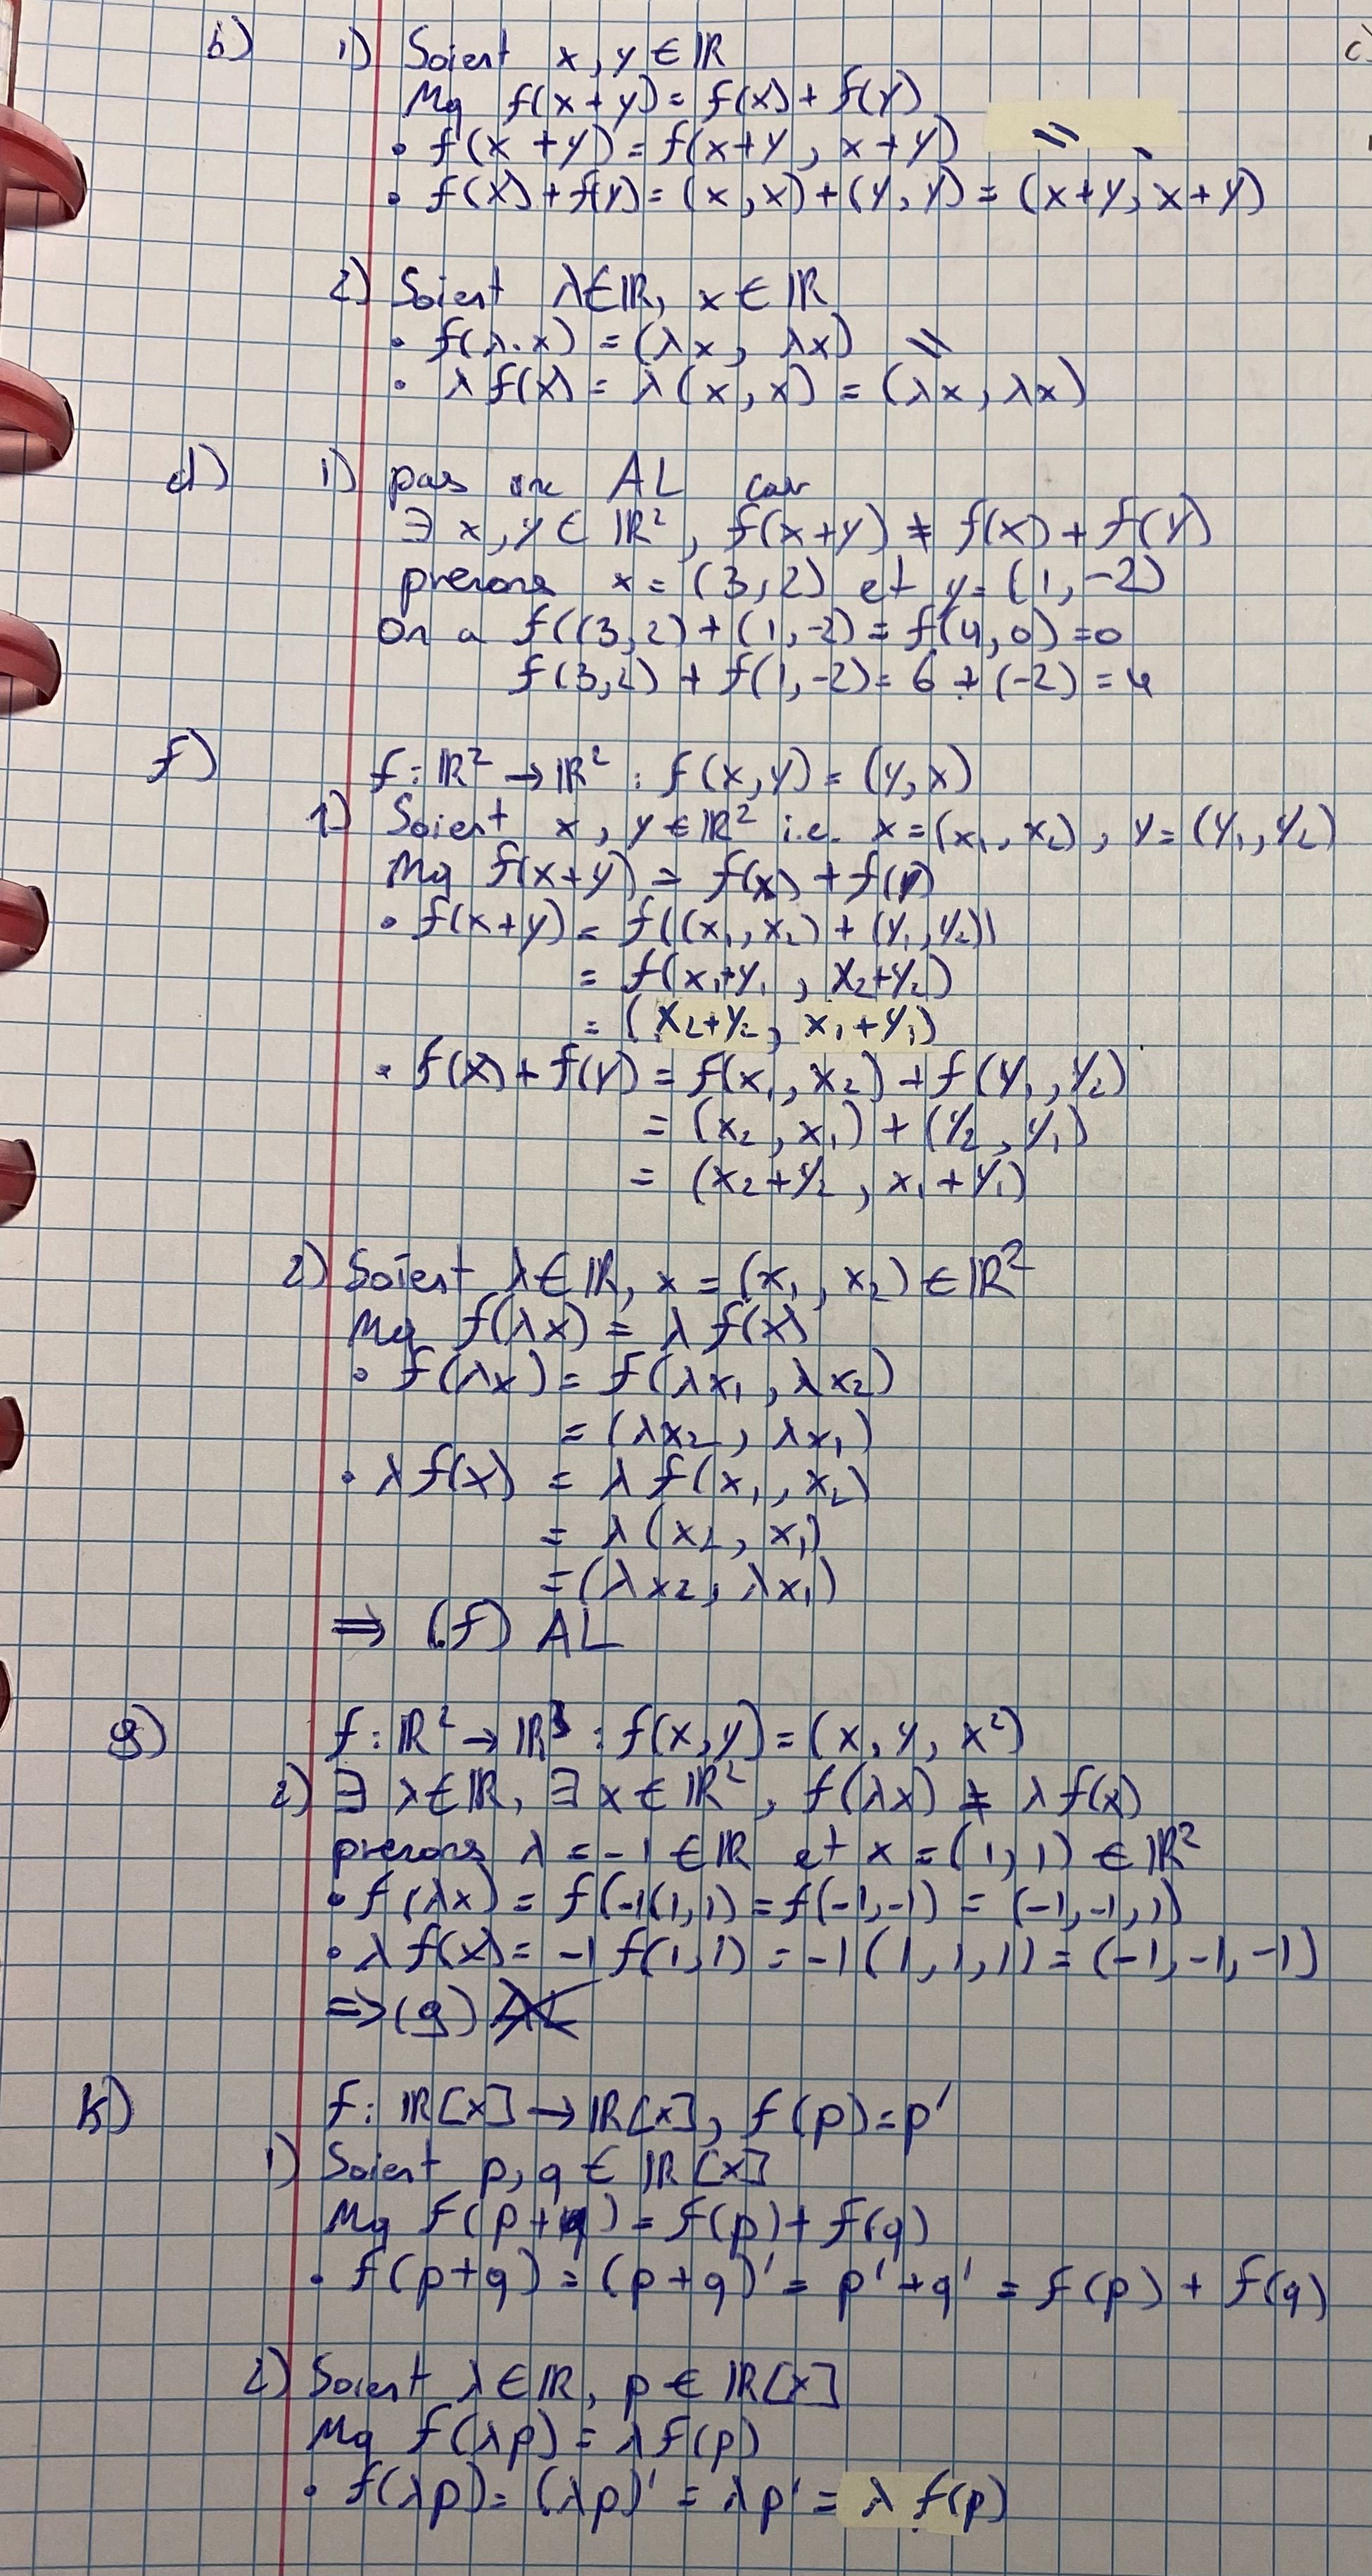 b) 1) Soient x, y ∈ ℝ
c)
Mq f(x+y) = f(x) + f(y)
• f(x+y) = f(x+y, x+y) \\
• f(x) + f(y) = (x, x) + (y, y) = (x+y, x+y)
2) Soient λ∈ℝ, x ∈ ℝ
• f(λ.x) = (λx, λx) \\
• λ f(x) = λ(x, x) = (λx, λx)
d) 1) pas une AL car
∃ x, y ∈ ℝ², f(x+y) ≠ f(x) + f(y)
prenons x = (3, 2) et y = (1, -2)
On a f((3, 2) + (1, -2) = f(4, 0) = 0
f(3, 2) + f(1, -2) = 6 + (-2) = 4
f) f: ℝ² → ℝ² : f(x, y) = (y, x)
1) Soient x, y ∈ ℝ² i.e. x = (x₁, x₂), y = (y₁, y₂)
Mq f(x+y) = f(x) + f(y)
• f(x+y) = f((x₁, x₂) + (y₁, y₂))
= f(x₁+y₁, x₂+y₂)
= (x₂+y₂, x₁+y₁)
• f(x) + f(y) = f(x₁, x₂) + f(y₁, y₂)
= (x₂, x₁) + (y₂, y₁)
= (x₂+y₂, x₁+y₁)
2) Soient λ∈ℝ, x = (x₁, x₂) ∈ ℝ²
Mq f(λx) = λ f(x)
• f(λx) = f(λx₁, λx₂)
= (λx₂, λx₁)
• λ f(x) = λ f(x₁, x₂)
= λ(x₂, x₁)
= (λx₂, λx₁)
⇒ (f) AL
g) f: ℝ² → ℝ³ : f(x, y) = (x, y, x²)
2) ∃ λ∈ℝ, ∃ x ∈ ℝ², f(λx) ≠ λ f(x)
prenons λ = -1 ∈ ℝ et x = (1, 1) ∈ ℝ²
• f(λx) = f(-1(1, 1) = f(-1, -1) = (-1, -1, 1)
• λ f(x) = -1 f(1, 1) = -1(1, 1, 1) = (-1, -1, -1)
⇒ (g) AL
k) f: ℝ[x] → ℝ[x], f(p) = p'
1) Soient p, q ∈ ℝ[x]
Mq f(p+q) = f(p) + f(q)
• f(p+q) = (p+q)' = p' + q' = f(p) + f(q)
2) Soient λ∈ℝ, p ∈ ℝ[x]
Mq f(λp) = λ f(p)
• f(λp) = (λp)' = λp' = λ f(p)